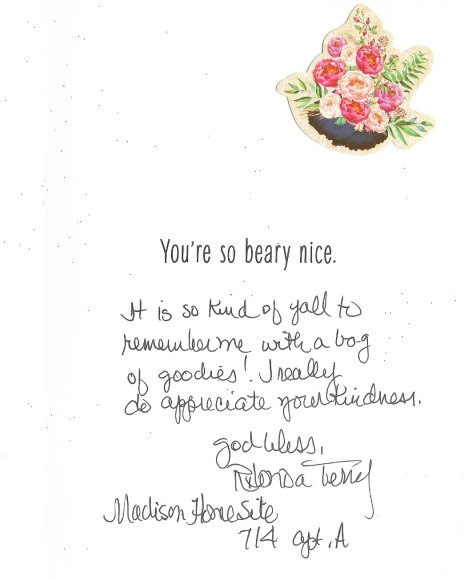 You're so beary nice.
It is so kind of yall to
remember me with a bag
of goodies! I really
do appreciate your kindness.
god bless,
Rhonda Terry
Madison HomeSite
714 apt. A